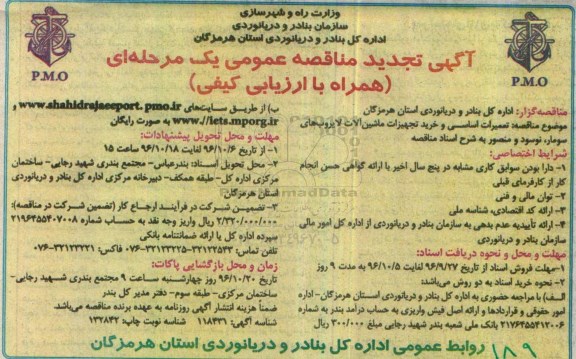 وزارت راه و شهرسازی
سازمان بنادر و دریانوردی
اداره کل بنادر و دریانوردی استان هرمزگان
P.M.O
P.M.O
آگهی تجدید مناقصه عمومی یک مرحله‌ای
(همراه با ارزیابی کیفی)
مناقصه‌گزار: اداره کل بنادر و دریانوردی استان هرمزگان
موضوع مناقصه: تعمیرات اساسی و خرید تجهیزات ماشین‌آلات لایروب‌های
سومار، نوسود و منصور به شرح اسناد مناقصه
شرایط اختصاصی:
۱- دارا بودن سوابق کاری مشابه در پنج سال اخیر با ارائه گواهی حسن انجام
کار از کارفرمای قبلی
۲- توان مالی و فنی
۳- ارائه کد اقتصادی، شناسه ملی
۴- ارائه تأییدیه عدم بدهی به سازمان بنادر و دریانوردی از اداره کل امور مالی
سازمان بنادر و دریانوردی
مهلت و محل و نحوه دریافت اسناد:
۱- مهلت فروش اسناد از تاریخ ۹۶/۹/۲۷ لغایت ۹۶/۱۰/۵ به مدت ۹ روز
۲- نحوه خرید اسناد به دو روش می‌باشد:
الف) با مراجعه حضوری به اداره کل بنادر و دریانوردی استان هرمزگان- اداره
امور حقوقی و قراردادها و ارائه اصل فیش واریزی به حساب درآمد بندر به شماره
۲۱۷۶۴۵۵۴۱۲۰۰۶ بانک ملی شعبه بندر شهید رجایی مبلغ ۳۰۰/۰۰۰ ریال
ب) از طریق سایت‌های www.shahidrajaeeport.pmo.ir و
www.//iets.mporg.ir به صورت رایگان
مهلت و محل تحویل پیشنهادات:
۱- از تاریخ ۹۶/۱۰/۶ لغایت ۹۶/۱۰/۱۸ ساعت ۱۵
۲- محل تحویل اسناد: بندرعباس- مجتمع بندری شهید رجایی- ساختمان
مرکزی اداره کل- طبقه همکف- دبیرخانه مرکزی اداره کل بنادر و دریانوردی
استان هرمزگان
۳- تضمین شرکت در فرآیند ارجاع کار (تضمین شرکت در مناقصه):
۲/۳۲۰/۰۰۰/۰۰۰ ریال واریز وجه نقد به حساب شماره ۲۱۹۶۴۵۵۴۰۷۰۰۸
سپرده اداره کل یا ارائه ضمانتنامه بانکی
تلفن تماس: ۳۲۱۲۲۵۳۳-۳۲۱۲۳۲۲۵-۰۷۶ فاکس: ۳۲۱۲۳۲۲۱-۰۷۶
زمان و محل بازگشایی پاکات:
تاریخ ۹۶/۱۰/۲۰ روز چهارشنبه ساعت ۹ مجتمع بندری شهید رجایی-
ساختمان مرکزی- طبقه سوم- دفتر مدیر کل بندر
ضمناً هزینه انتشار آگهی روزنامه به عهده برنده مناقصه می‌باشد.
شناسه آگهی: ۱۱۸۳۳۱ شناسه نوبت چاپ: ۱۳۲۸۴۲
روابط عمومی اداره کل بنادر و دریانوردی استان هرمزگان